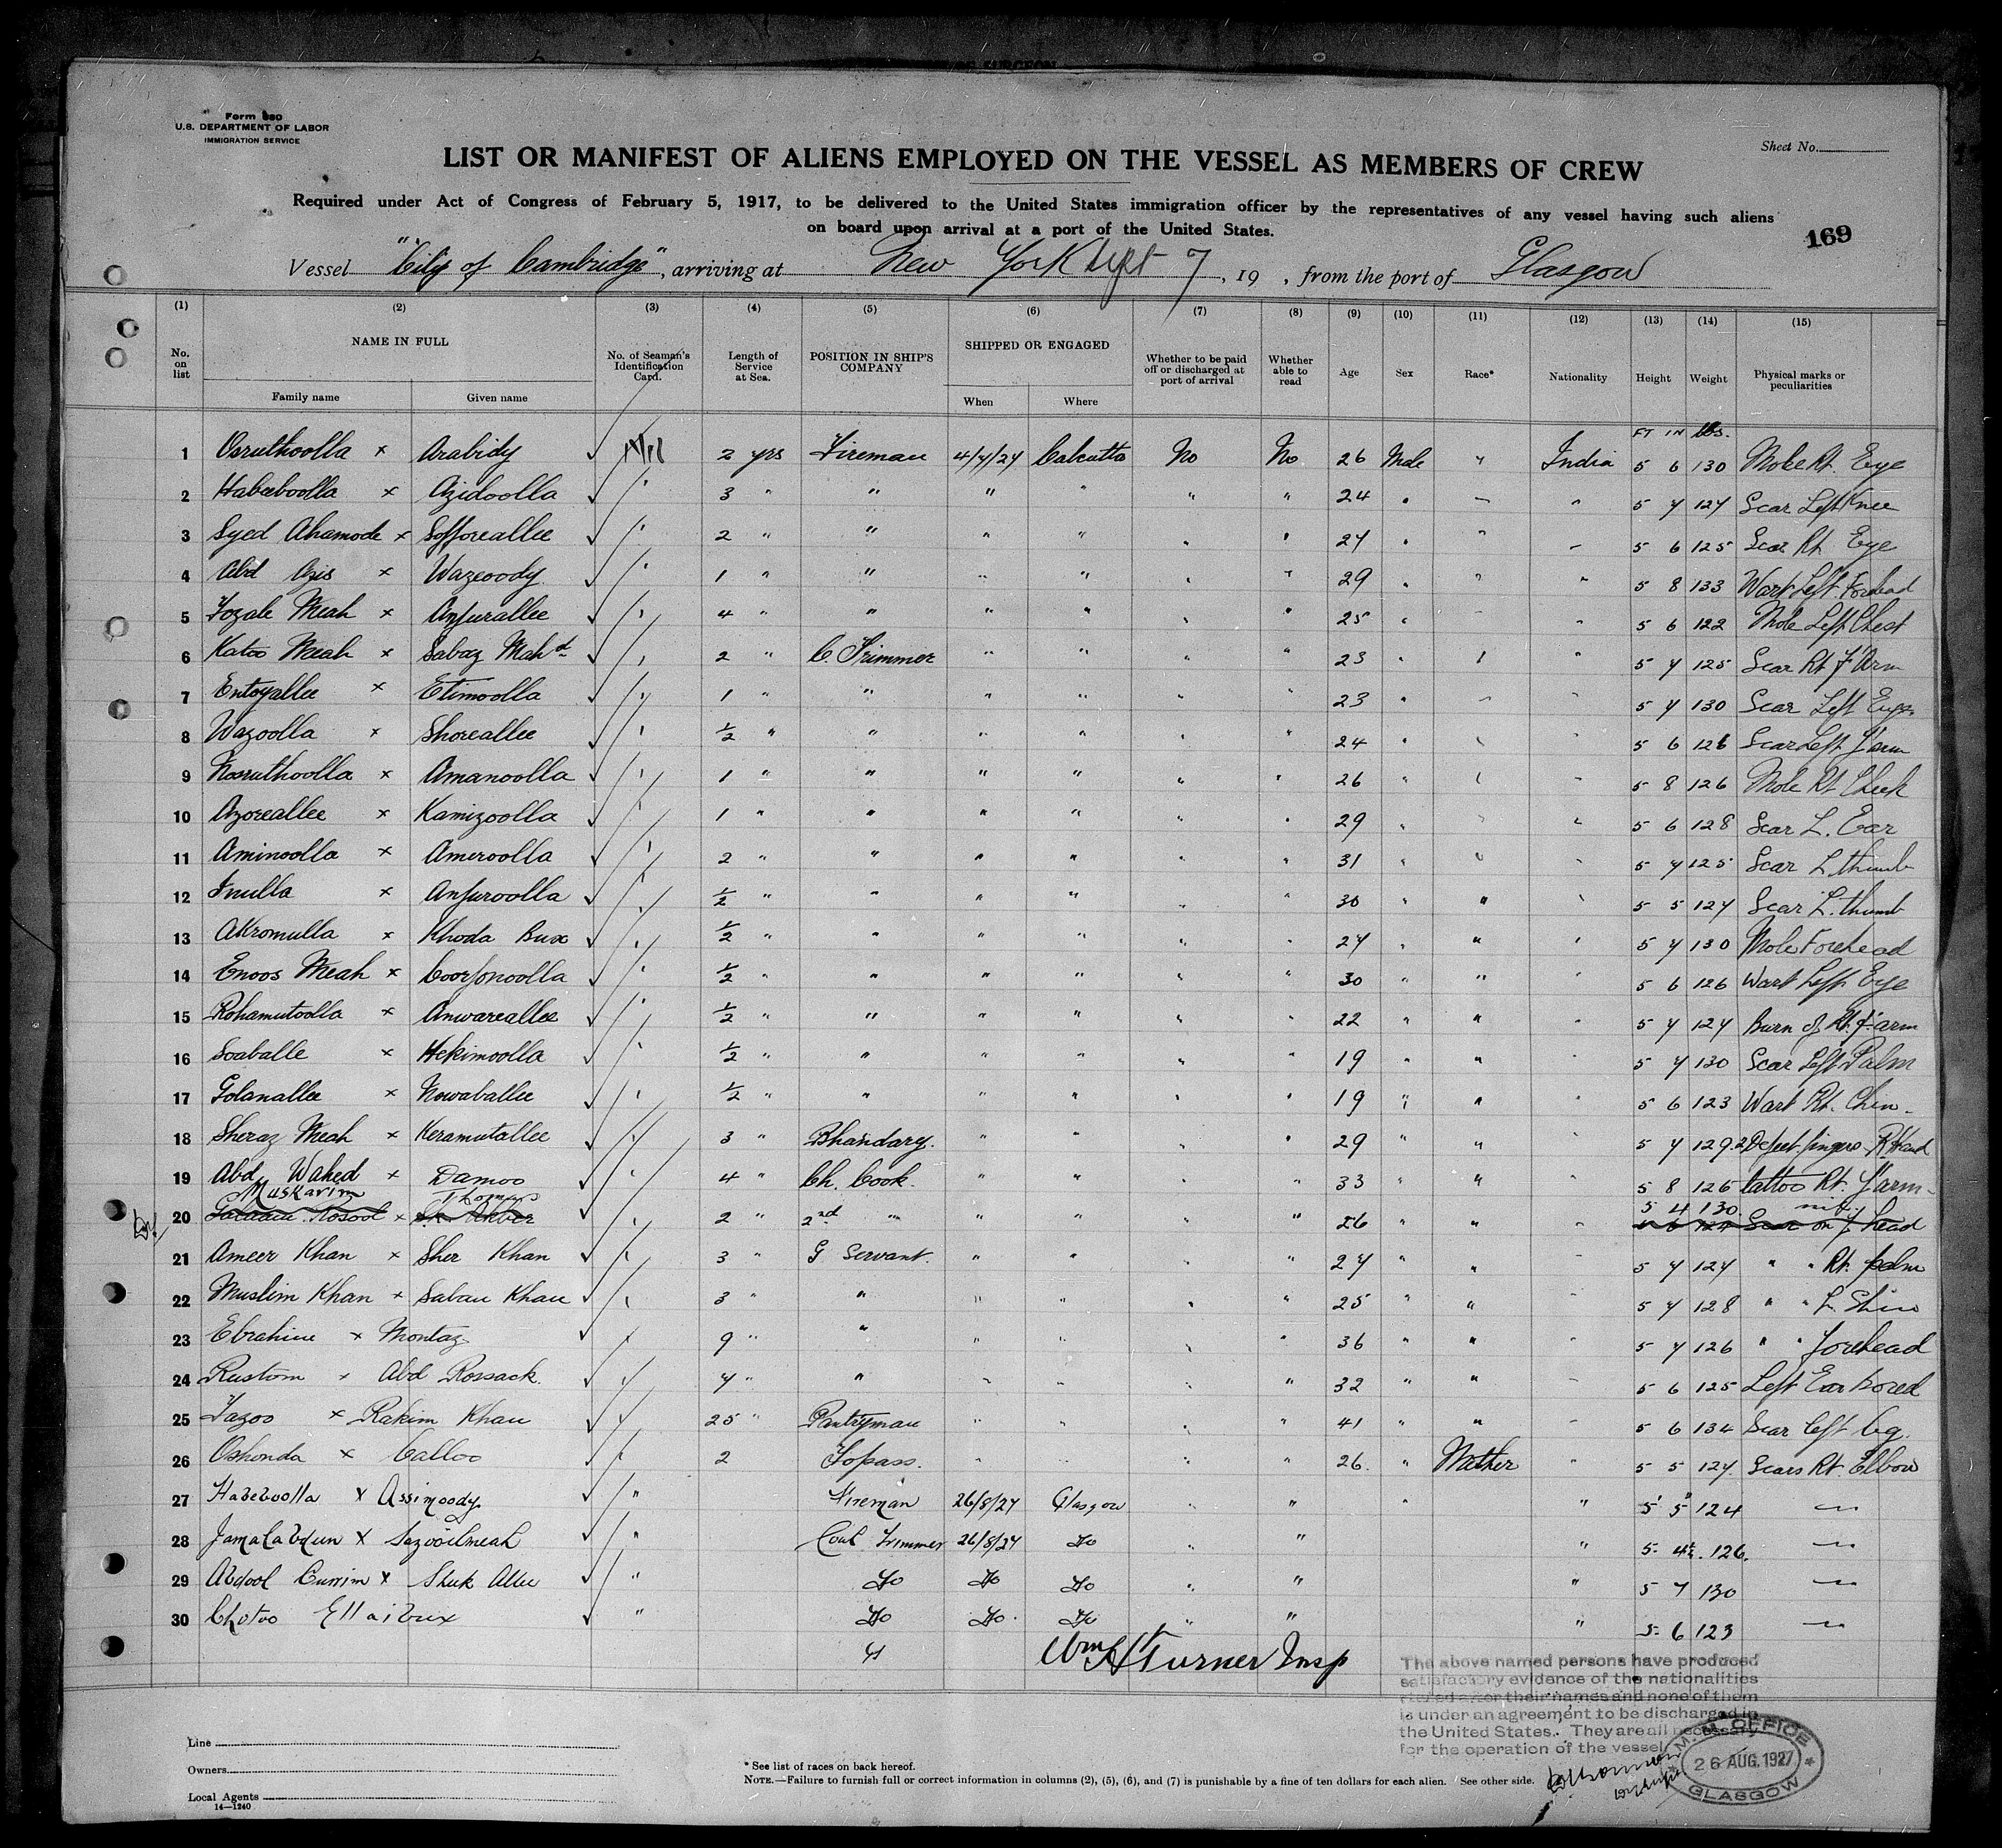 Form 680
U.S. DEPARTMENT OF LABOR
IMMIGRATION SERVICE
Sheet No.
LIST OR MANIFEST OF ALIENS EMPLOYED ON THE VESSEL AS MEMBERS OF CREW
Required under Act of Congress of February 5, 1917, to be delivered to the United States immigration officer by the representatives of any vessel having such aliens
on board upon arrival at a port of the United States.
169
Vessel "City of Cambridge", arriving at New York Sept 7, 19 , from the port of Glasgow
(1) (2) (3) (4) (5) (6) (7) (8) (9) (10) (11) (12) (13) (14) (15)
No. on list NAME IN FULL No. of Seaman's Identification Card. Length of Service at Sea. POSITION IN SHIP'S COMPANY SHIPPED OR ENGAGED Whether to be paid off or discharged at port of arrival Whether able to read Age Sex Race* Nationality Height Weight Physical marks or peculiarities
Family name Given name When Where
FT IN lbs.
1 Osruthoolla x Arabidy ✓ Nil 2 yrs Fireman 4/4/27 Calcutta No No 26 Male " India 5 6 130 Mole Rt. Eye
2 Habeeboolla x Azidoolla ✓ 3 " " " " " " 24 " " 5 7 127 Scar Left Knee
3 Syed Ahamode x Sofforeallee ✓ 2 " " " " " " 27 " " 5 6 125 Scar Rt Eye
4 Abd Azis x Wazeoody ✓ 1 " " " " " " 29 " " " 5 8 133 Wart Left Forhead
5 Fozale Meah x Anfurallee ✓ 4 " " " " " " 25 " " 5 6 122 Mole Left Chest
6 Katoo Meah x Sabaz Mahd ✓ 2 " C. Trimmer " " " " 23 " " 5 7 125 Scar Rt F'Arm
7 Entoyallee x Etimoolla ✓ 1 " " " " " " 23 " 5 7 130 Scar Left
8 Wazoolla x Shoreallee ✓ ½ " " " " " " 24 " " 5 6 126 Scar Left F'arm
9 Nosruthoolla x Amanoolla ✓ 1 " " " " " " 26 " " 5 8 126 Mole Rt Cheek
10 Azoreallee x Kamizoolla ✓ 1 " " " " " " 29 " " 5 6 128 Scar L. Ear
11 Aminoolla x Ameroolla ✓ 2 " " " " " " 31 " " 5 7 125 Scar L thumb
12 Inulla x Anfuroolla ✓ ½ " " " " " 30 " " 5 5 127 Scar L. thumb
13 Akromulla x Khoda Bux ✓ ½ " " " " " " 27 " " " 5 7 130 Mole Forehead
14 Enoos Meah x Coorfonoolla ✓ ½ " " " " " " 30 " " " 5 6 126 Wart Left Eye
15 Rohamutoolla x Anwareallee ✓ ½ " " " " " " 22 " " " 5 7 127 Burn of Rt. F'arm
16 Soaballe x Hekimoolla ✓ ½ " " " " " " 19 " " " 5 7 130 Scar Left Palm
17 Golanallee x Nowaballee ✓ ½ " " " " " " 19 " " " 5 6 123 Wart Rt. Chin
18 Sheraz Meah x Keramutallee ✓ 3 " Bhandary. " " " " 29 " " " 5 7 129 2 Defect fingers R Hand
19 Abd Wahed x Damoo 4 " Ch. Cook. " " " " 33 " " " 5 8 126 tattoo Rt. F'arm
Muskarim Thomas 5 4 130. nil
20 x Sk. Akber 2 " 2nd " " " " " 26 " " " Scar on F. head
21 Ameer Khan x Sher Khan ✓ 3 " G Servant. " " " " 27 " " 5 7 127 " " Rt. palm
22 Muslim Khan x Saban Khan ✓ 3 " " " " " " 25 " " " 5 7 128 " " L. Shin
23 Ebrahim x Montaz ✓ 9 " " " " " 36 " " " 5 7 126 " " forehead
24 Rustom x Abd Rossack. ✓ 7 " " " " " " 32 " " 5 6 125 Left Ear bored
25 Fazoo x Rahim Khan ✓ 25 " Pantryman " " " " 41 " " " 5 6 134 Scar left leg.
26 Oshonda x Calloo ✓ 2 Topass. " " " " 26. " " 5 5 127. Scars Rt. Elbow
27 Habeboolla x Assimoody ✓ " Fireman 26/8/27 Glasgow " " " " 5' 5" 124 —
28 x ✓ " Coal Trimmer 26/8/27 Do " " " 5. 4½. 126. —
29 Abdool Currim x Shek Allee ✓ " Do Do Do " " " 5 7 130 —
30 Chotoo Ellaibux ✓ " Do Do. Do " " " 5 6 123 —
Wm H Turner Insp
The above named persons have produced
satisfactory evidence of the nationalities
stated after their names and none of them
is under an agreement to be discharged in
the United States. They are all necessary
for the operation of the vessel
M. M. OFFICE
26 AUG. 1927
GLASGOW
Line
Owners
Local Agents
14—1240
* See list of races on back hereof.
NOTE.—Failure to furnish full or correct information in columns (2), (5), (6), and (7) is punishable by a fine of ten dollars for each alien. See other side.